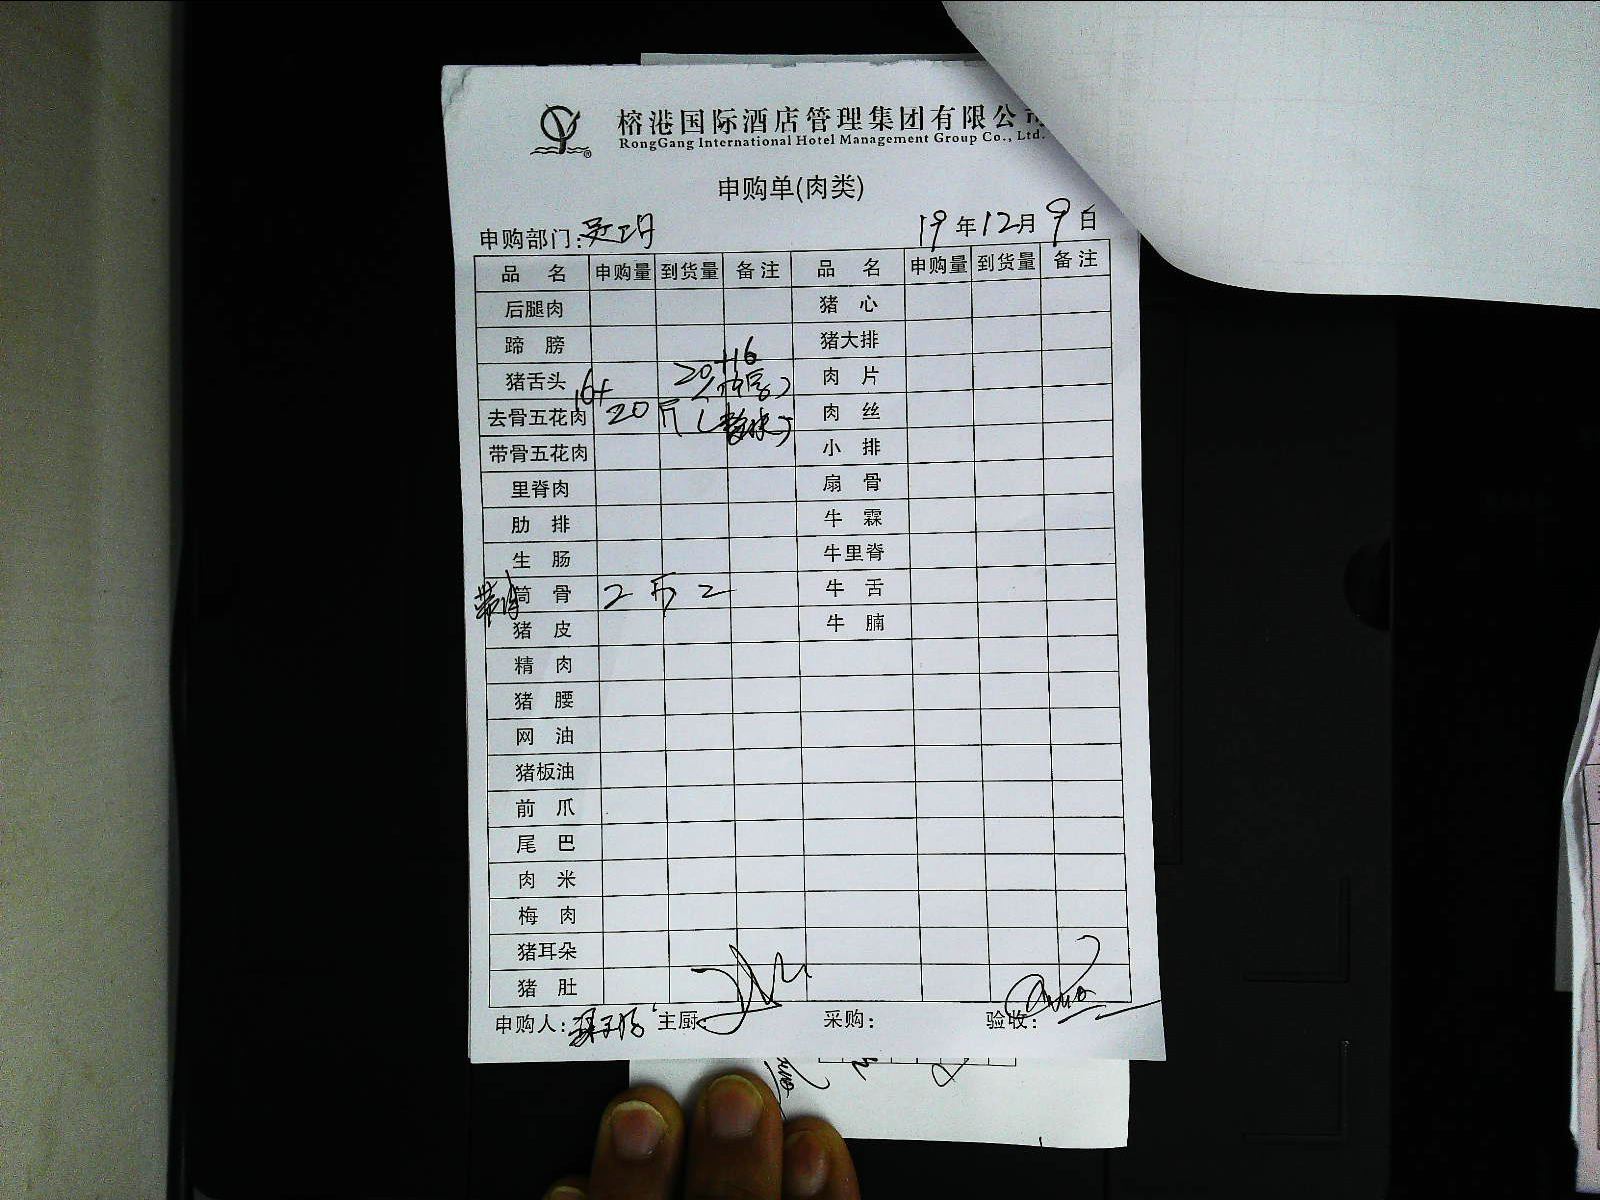 榕港国际酒店管理集团有限公司
RongGang International Hotel Management Group Co., Ltd.
申购单(肉类)
申购部门: 19年12月9日
品名 申购量 到货量 备注 品名 申购量 到货量 备注
后腿肉 猪心
蹄膀 猪大排
猪舌头 20+16 肉片
去骨五花肉 16+20斤(整块) 肉丝
带骨五花肉 小排
里脊肉 扇骨
肋排 牛霖
生肠 牛里脊
筒骨 2斤 2 牛舌
猪皮 牛腩
精肉
猪腰
网油
猪板油
前爪
尾巴
肉米
梅肉
猪耳朵
猪肚
申购人: 主厨: 采购: 验收: